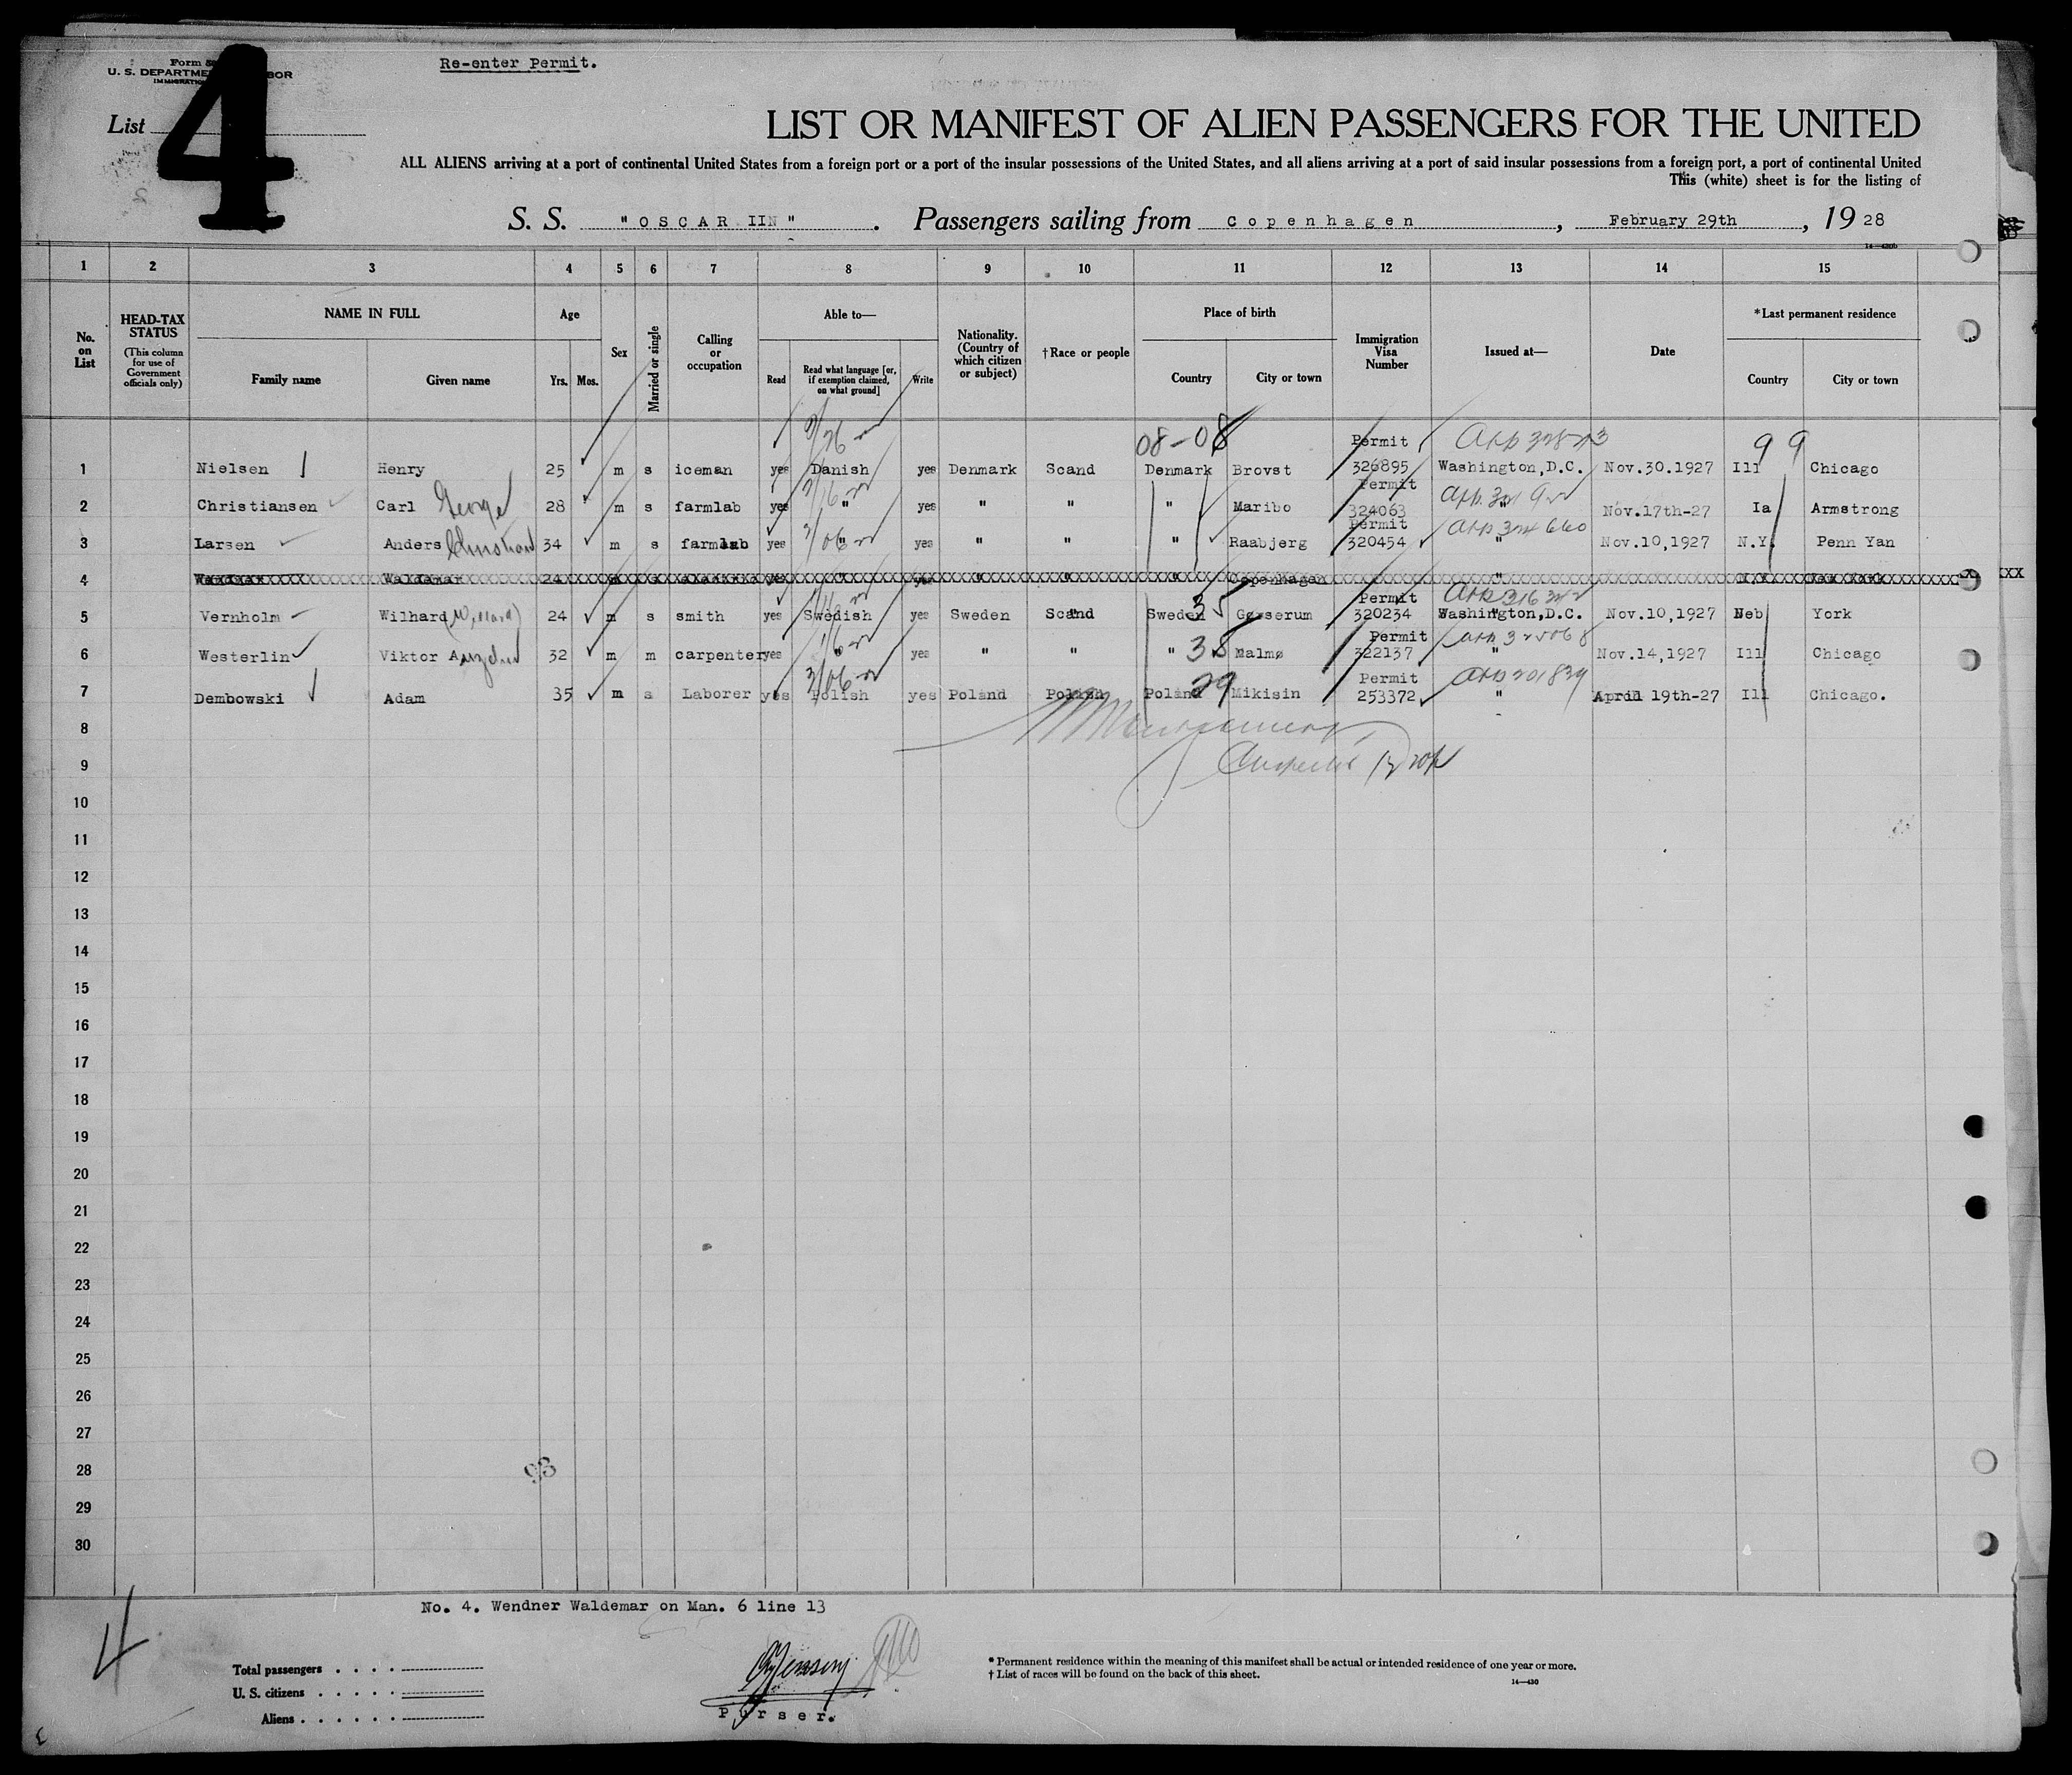 Re-enter Permit.
Form
U. S. DEPARTME BOR
IMMIGRATIO
List 4
LIST OR MANIFEST OF ALIEN PASSENGERS FOR THE UNITED
ALL ALIENS arriving at a port of continental United States from a foreign port or a port of the insular possessions of the United States, and all aliens arriving at a port of said insular possessions from a foreign port, a port of continental United
This (white) sheet is for the listing of
S. S. "OSCAR II" . Passengers sailing from Copenhagen , February 29th , 1928
1 2 3 4 5 6 7 8 9 10 11 12 13 14 15
No. on List
HEAD-TAX STATUS (This column for use of Government officials only)
NAME IN FULL Family name Given name
Age Yrs. Mos.
Sex
Married or single
Calling or occupation
Able to— Read Read what language [or, if exemption claimed, on what ground] Write
Nationality. (Country of which citizen or subject)
†Race or people
Place of birth Country City or town
Immigration Visa Number
Issued at—
Date
*Last permanent residence Country City or town
08-08 Permit 99
1 Nielsen Henry 25 m s iceman yes Danish yes Denmark Scand Denmark Brovst 326895 Washington,D.C. Nov.30.1927 Ill Chicago
Permit
2 Christiansen Carl George 28 m s farmlab yes " yes " " " Maribo 324063 " Nov.17th-27 Ia Armstrong
Permit
3 Larsen Anders Christian 34 m s farmlab yes " yes " " " Raabjerg 320454 " Nov.10,1927 N.Y. Penn Yan
4 Waldemar 24 m s electric yes " yes " " " Copenhagen " N.Y. New York
Permit
5 Vernholm Wilhard (Willard) 24 m s smith yes Swedish yes Sweden Scand Sweden 35 Gøserum 320234 Washington,D.C. Nov.10,1927 Neb York
Permit
6 Westerlin Viktor 32 m m carpenter yes " yes " " " 38 Malmø 322137 " Nov.14,1927 Ill Chicago
Permit
7 Dembowski Adam 35 m s Laborer yes Polish yes Poland Polish Poland 29 Mikisin 253372 " April 19th-27 Ill Chicago.
8
9
10
11
12
13
14
15
16
17
18
19
20
21
22
23
24
25
26
27
28
93
29
30
No. 4. Wendner Waldemar on Man. 6 line 13
4
Total passengers
U. S. citizens
Aliens
Purser.
* Permanent residence within the meaning of this manifest shall be actual or intended residence of one year or more.
† List of races will be found on the back of this sheet.
14—430